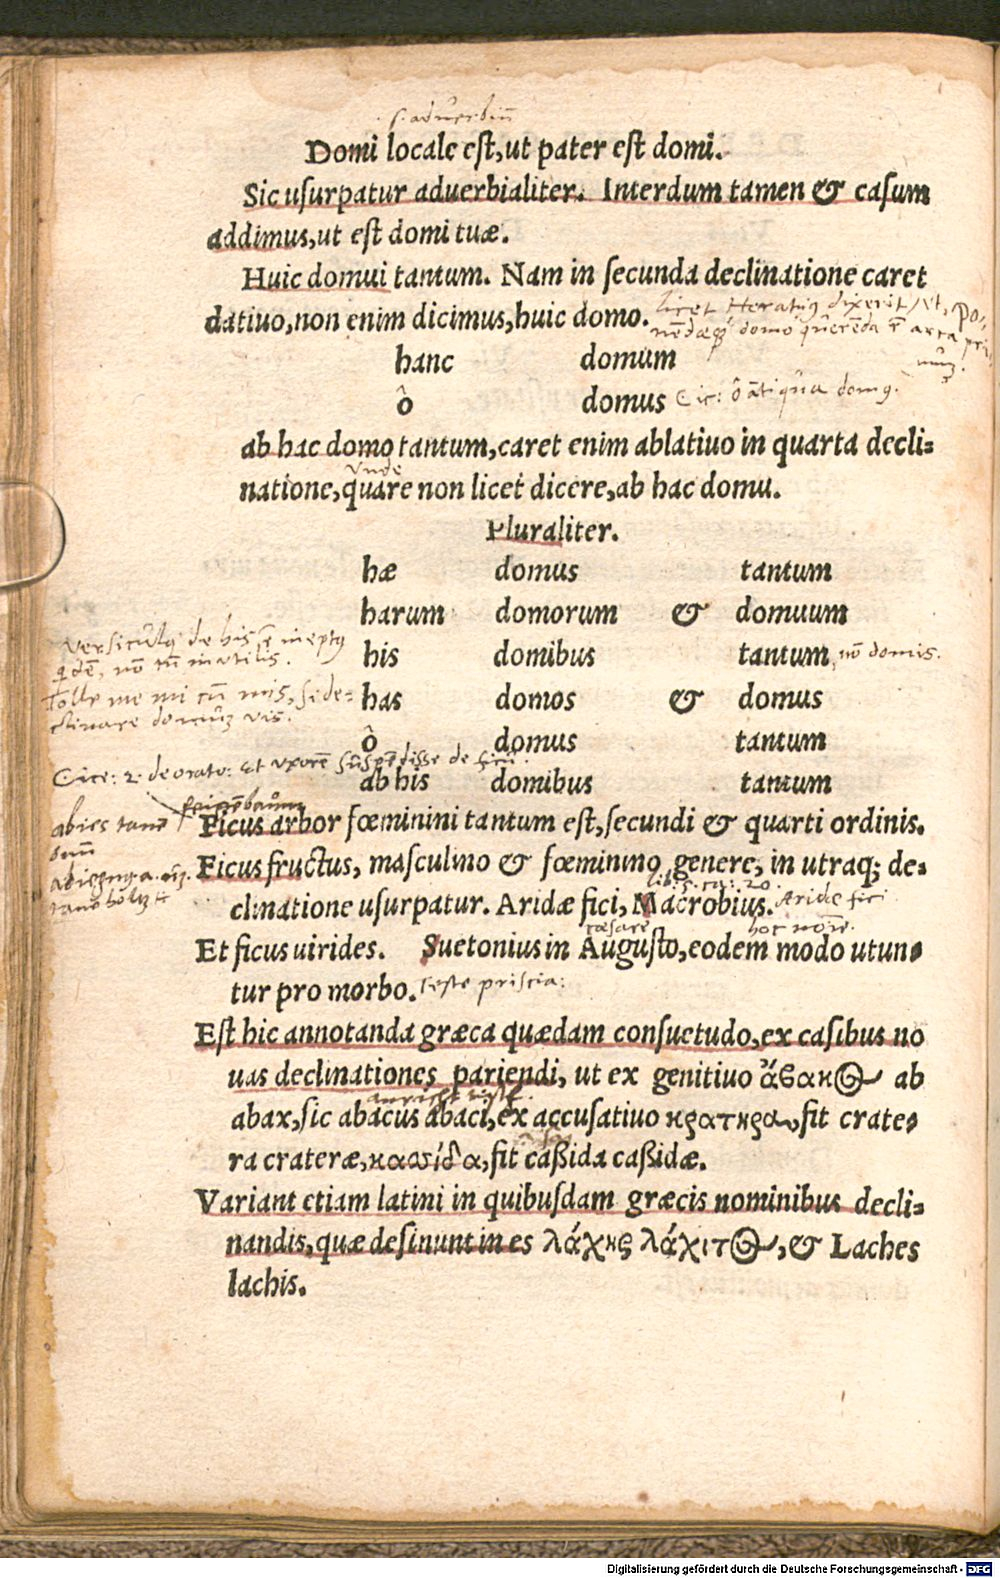 s. adũerbiũ
Domi locale est, ut pater est domi.
Sic usurpatur aduerbialiter. Interdum tamen & casum
addimus, ut est domi tuæ.
Huic domui tantum. Nam in secunda declinatione caret
datiuo, non enim dicimus, huic domo.
licet Horatiũs dixerit, ut, Po-
nẽdæq; domo quærẽda ẽ area pri-
mũ.
hanc domum
ô domus Cic: ô ãtiqua domus.
ab hac domo tantum, caret enim ablatiuo in quarta decli-
vnde
natione, quare non licet dicere, ab hac domu.
Pluraliter.
hæ domus tantum
harum domorum & domuum
versiculus de his ineptus
his domibus tantum, nõ domis.
qidẽ, nõ tñ inutilis.
Tolle me mi cũ mis, si de-
has domos & domus
clinare domus vis.
ô domus tantum
Cice: 2. de orato: et vxorẽ sũspẽdisse de ficu.
ab his domibus tantum
feigẽbaũm
abies tanẽ
baũ
Ficus arbor fœminini tantum est, secundi & quarti ordinis.
Ficus fructus, masculino & fœminino genere, in utraq; de-
lib. 5. ca: 20.
clinatione usurpatur. Aridæ fici, Macrobius. Aridæ fici
cæsare hoc noĩe.
Et ficus uirides. Suetonius in Augusto, eodem modo utun-
tur pro morbo. teste priscia:
Est hic annotanda græca quædam consuetudo, ex casibus no
uas declinationes pariendi, ut ex genitiuo ἄβακος ab
anricht tisch.
abax, sic abacus abaci, ex accusatiuo κρατηρα, fit crate-
ra crateræ, κασίδα, fit caßida caßidæ.
Variant etiam latini in quibusdam græcis nominibus decli-
nandis, quæ desinunt in es λάχης λάχιτος, & Laches
lachis.
Digitalisierung gefördert durch die Deutsche Forschungsgemeinschaft - DFG